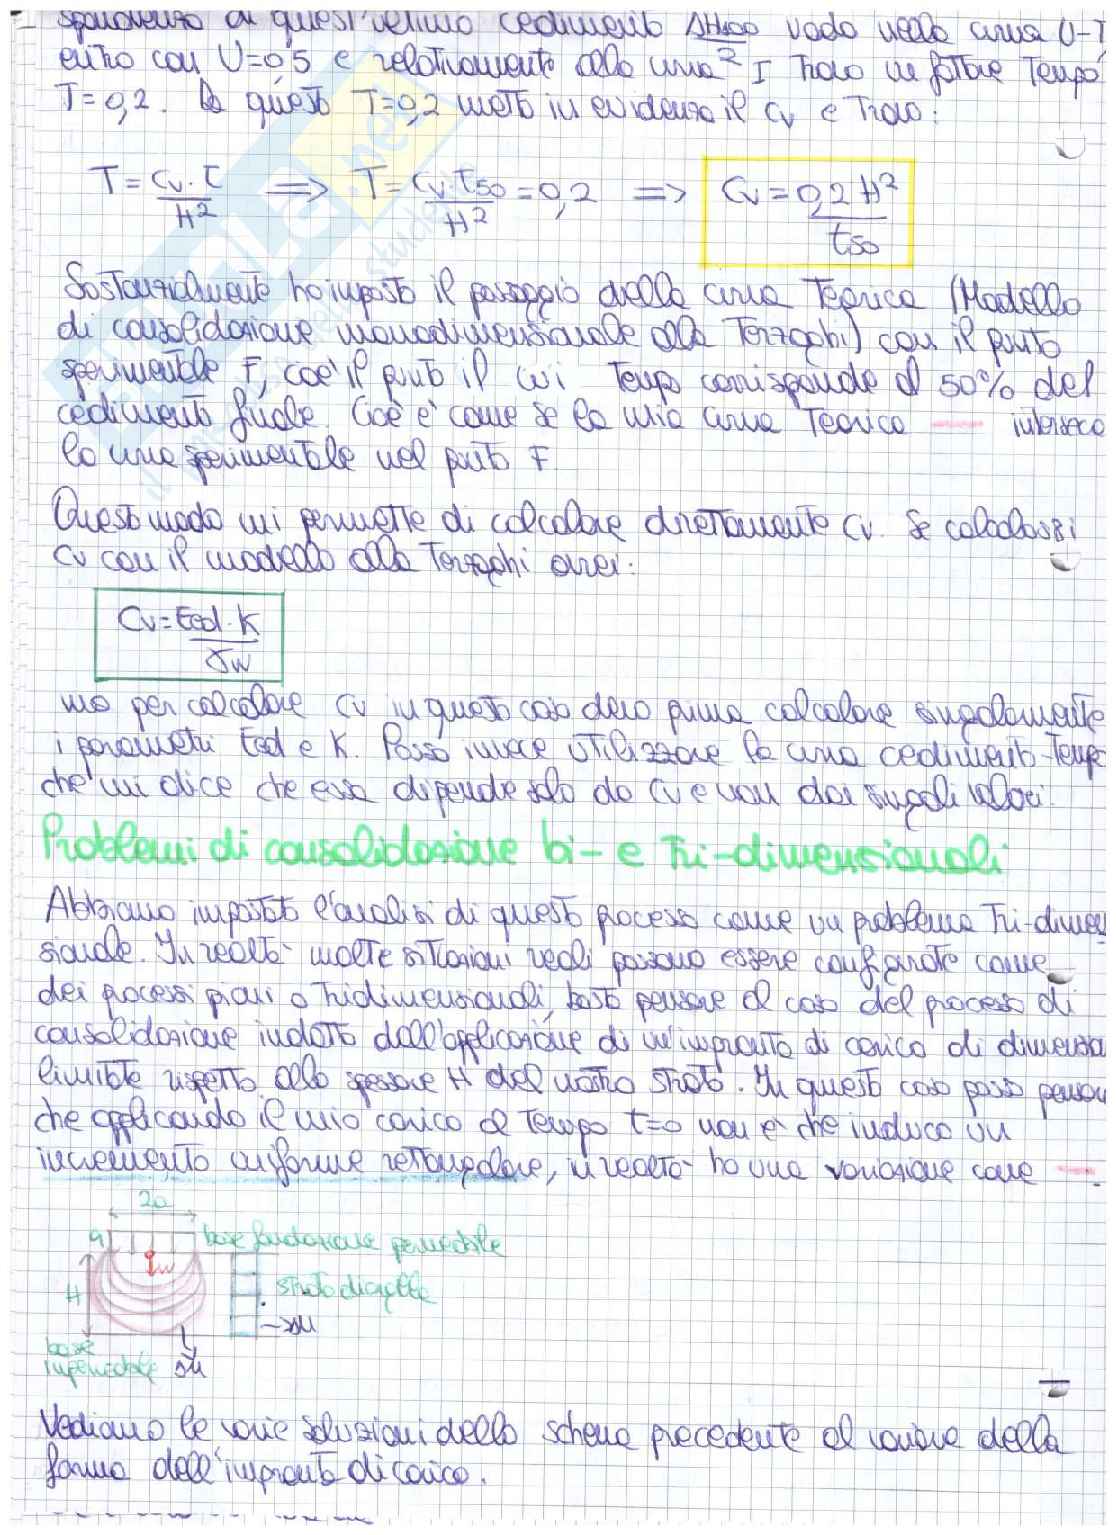 di quest'ultimo cedimento ΔH100/2 vado nella curva U-T
entro con U=0,5 e relativamente alla curva I trovo un fattore Tempo
T=0,2. Da questo T=0,2 metto in evidenza il cv e trovo:
T = cv·t/H² ⟹ T = cv·t50/H² = 0,2 ⟹ Cv = 0,2 H²/t50
Sostanzialmente ho imposto il passaggio della curva Teorica (Modello
di consolidazione monodimensionale alla Terzaghi) con il punto
sperimentale F, cioè il punto il cui Tempo corrisponde al 50% del
cedimento finale. Cioè è come se la mia curva Teorica — interseca
la curva sperimentale nel punto F.
Questo modo mi permette di calcolare direttamente cv. Se calcolassi
cv con il modello alla Terzaghi avrei:
Cv = Eed·K/γw
ma per calcolare cv in questo caso devo prima calcolare singolarmente
i parametri Eed e K. Posso invece utilizzare la curva cedimenti-Tempo
che mi dice che essa dipende solo da cv e non dai singoli valori.
Problemi di consolidazione bi- e Tri-dimensionali
Abbiamo impostato l'analisi di questo processo come un problema Tri-dimen
sionale. In realtà molte situazioni reali possono essere configurate come
dei processi piani o Tridimensionali, basta pensare al caso del processo di
consolidazione indotto dall'applicazione di un'impronta di carico di dimensio
limitate rispetto allo spessore H del nostro strato. In questo caso posso pensar
che applicando il mio carico al Tempo t=0 non è che induco un
incremento uniforme rettangolare, in realtà ho una variazione come —.
2a
q base fondazione permeabile
H strato di argilla
base
impermeabile
Vediamo le varie soluzioni dello schema precedente al variare della
forma dell'impronta di carico.